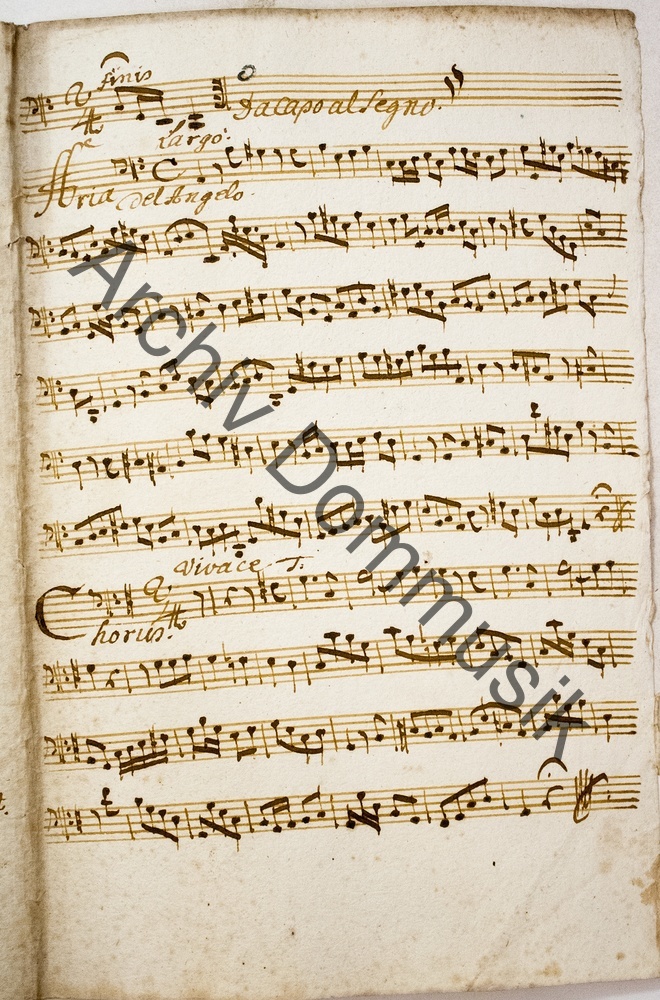 Finis
Da Capo al Segno.
Largo.
Aria Del Angelo.
Vivace T.
Chorus.
Archiv Dommusik